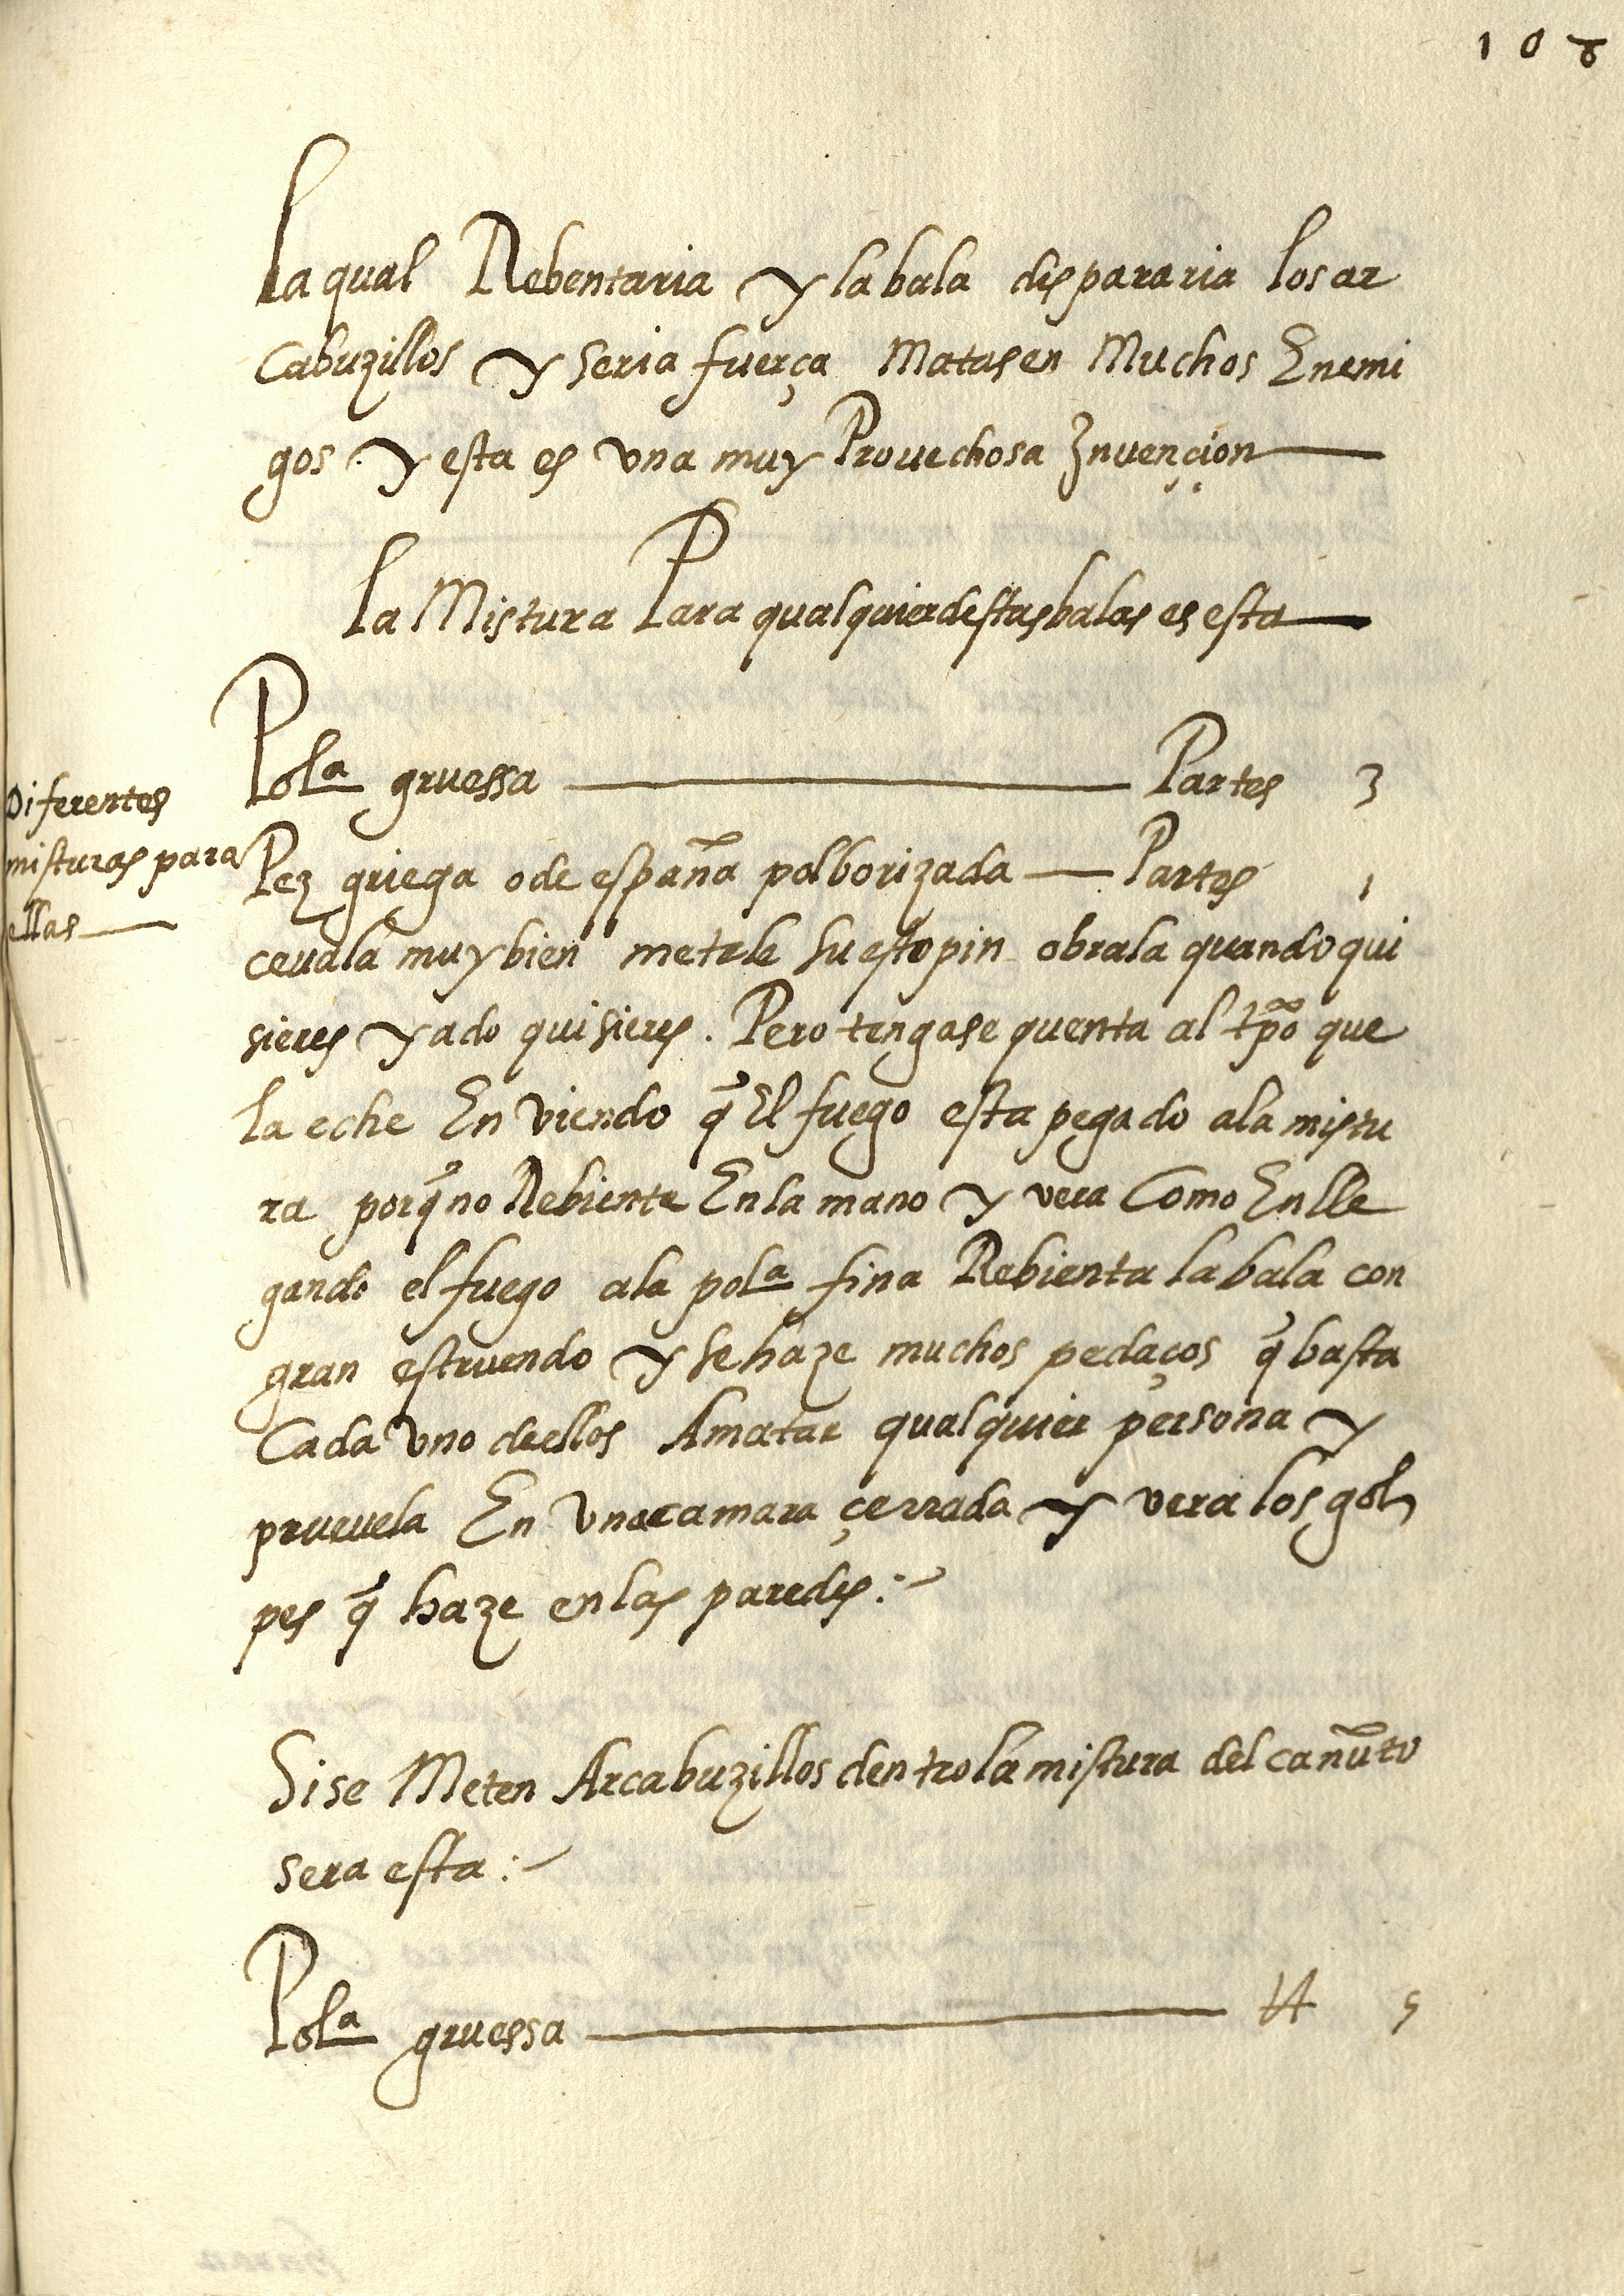 108
la qual Rebentaria y la bala dispararia los ar
cabuzillos y seria fuerça Matasen Muchos Enemi
gos y esta es una muy Provechosa Invençion
la Mistura Para qualquier destas balas es esta
Diferentes
misturas para
ellas
Polª gruessa Partes 3
Pez griega o de españa polborizada Partes 1
cevala muy bien metele su estopin obrala quando qui
sieres y ado quisieres. Pero tengase quenta al tpõ que
la eche En viendo q̃ El fuego esta pegado ala mistu
ra porq̃ no Rebiente En la mano y vera Como En lle
gando el fuego ala polª fina Rebienta la bala con
gran estruendo y se haze muchos pedaços q̃ basta
Cada uno dellos Amatar qualquier persona y
pruevela En una camara çerrada y vera los gol
pes q̃ haze en las paredes:-
Si se Meten Arcabuzillos dentro la mistura del cañuto
sera esta:-
Polª gruessa 5